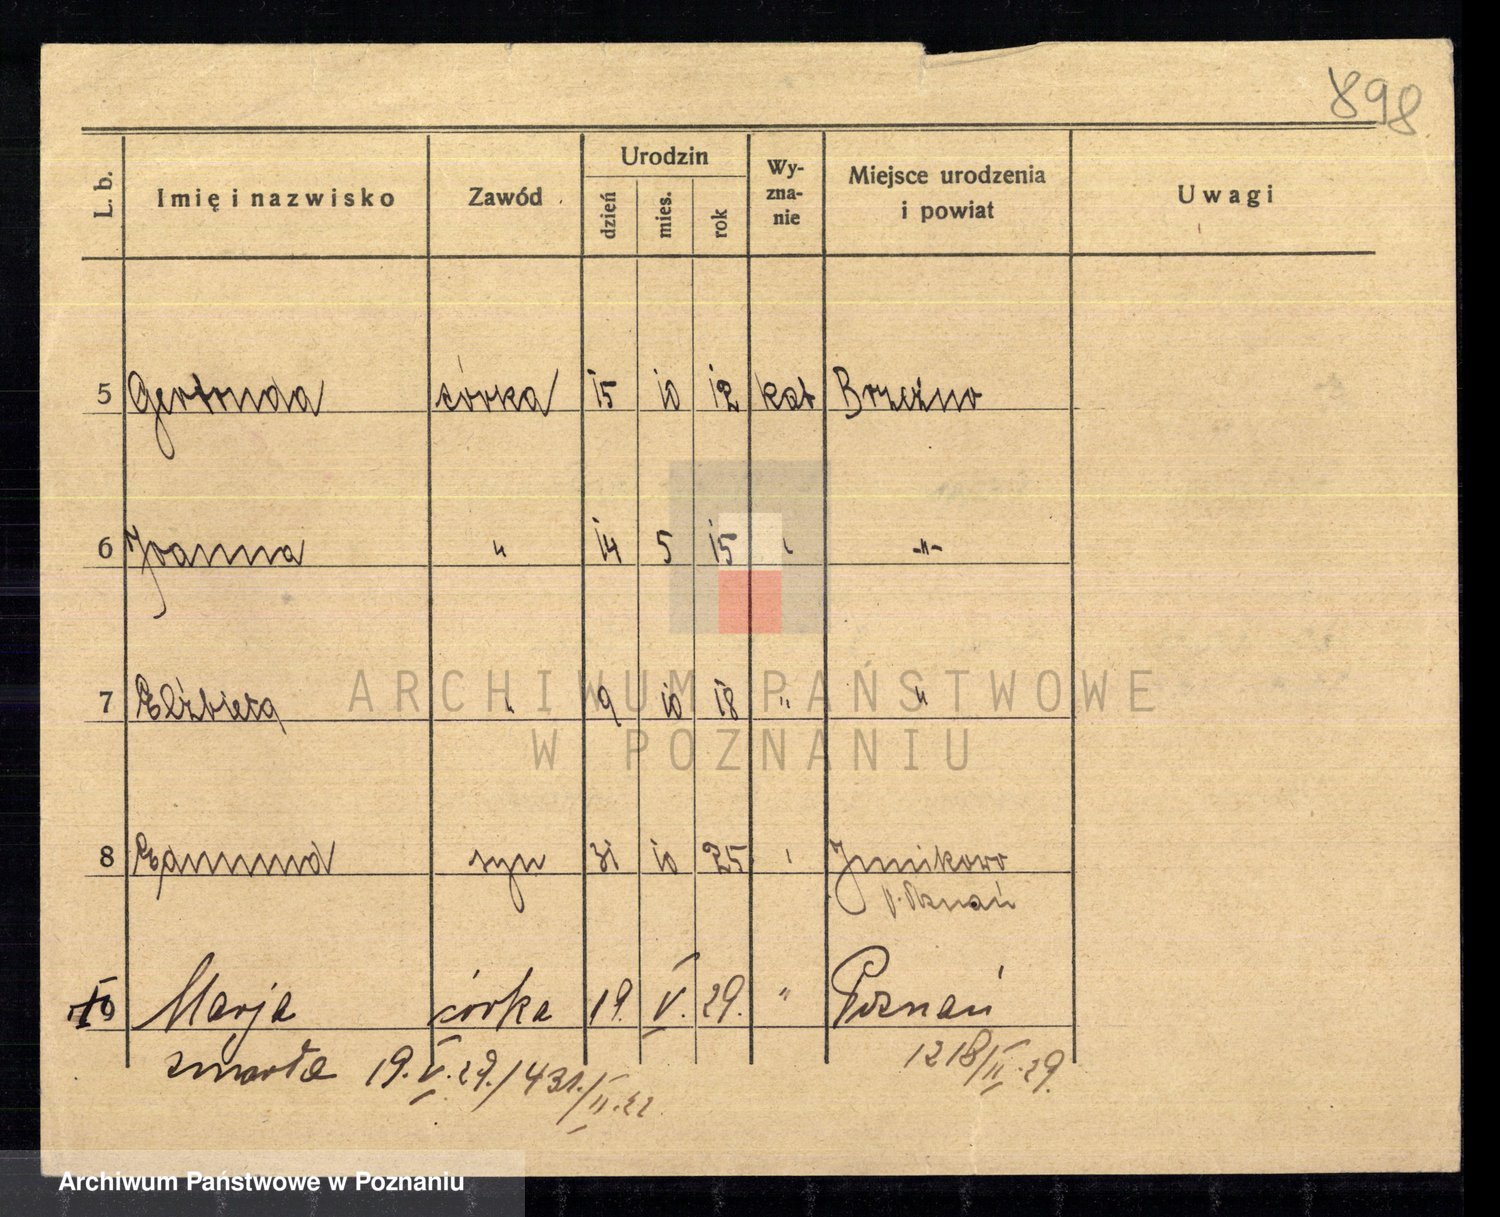 898
L. b. Imię i nazwisko Zawód Urodzin Wy-
zna-
nie Miejsce urodzenia
i powiat Uwagi
dzień mies. rok
5 Gertruda córka 15 10 12 kat Brzeźno
6 Joanna " 14 5 15 " -"-
7 Elżbieta " 9 10 18 " "
8 Edmund syn 31 10 25 " Junikowo
p. Poznań
9 Marja córka 19. V. 29. " Poznań
zmarła 19. V. 29./431./II.
1218/II.29.
ARCHIWUM PAŃSTWOWE
W POZNANIU
Archiwum Państwowe w Poznaniu